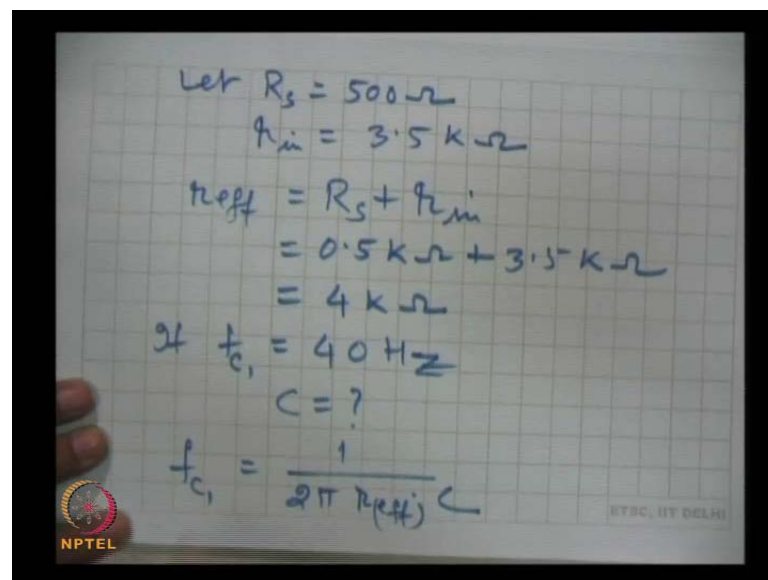 Let R_s = 500 Ω
r_in = 3.5 K Ω
r_eff = R_s + r_in
= 0.5 K Ω + 3.5 K Ω
= 4 K Ω
If f_c₁ = 40 Hz
C = ?
f_c₁ = 1 / (2π r(eff) C)
ETSC, IIT DELHI
NPTEL